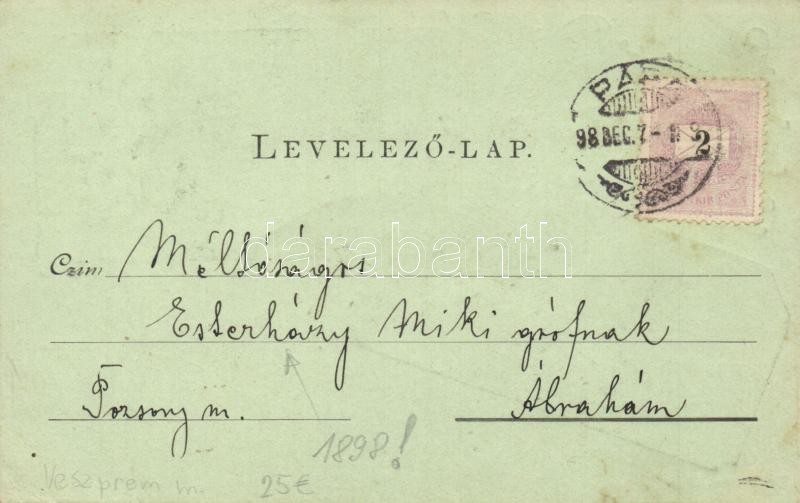 LEVELEZŐ-LAP.
PÁPA
98 DEC. 7
2
darabanth
Czim Méltóságos
Esterházy Miki grófnak
Pozsony m.
Ábrahám
1898!
Veszprém m.
25€